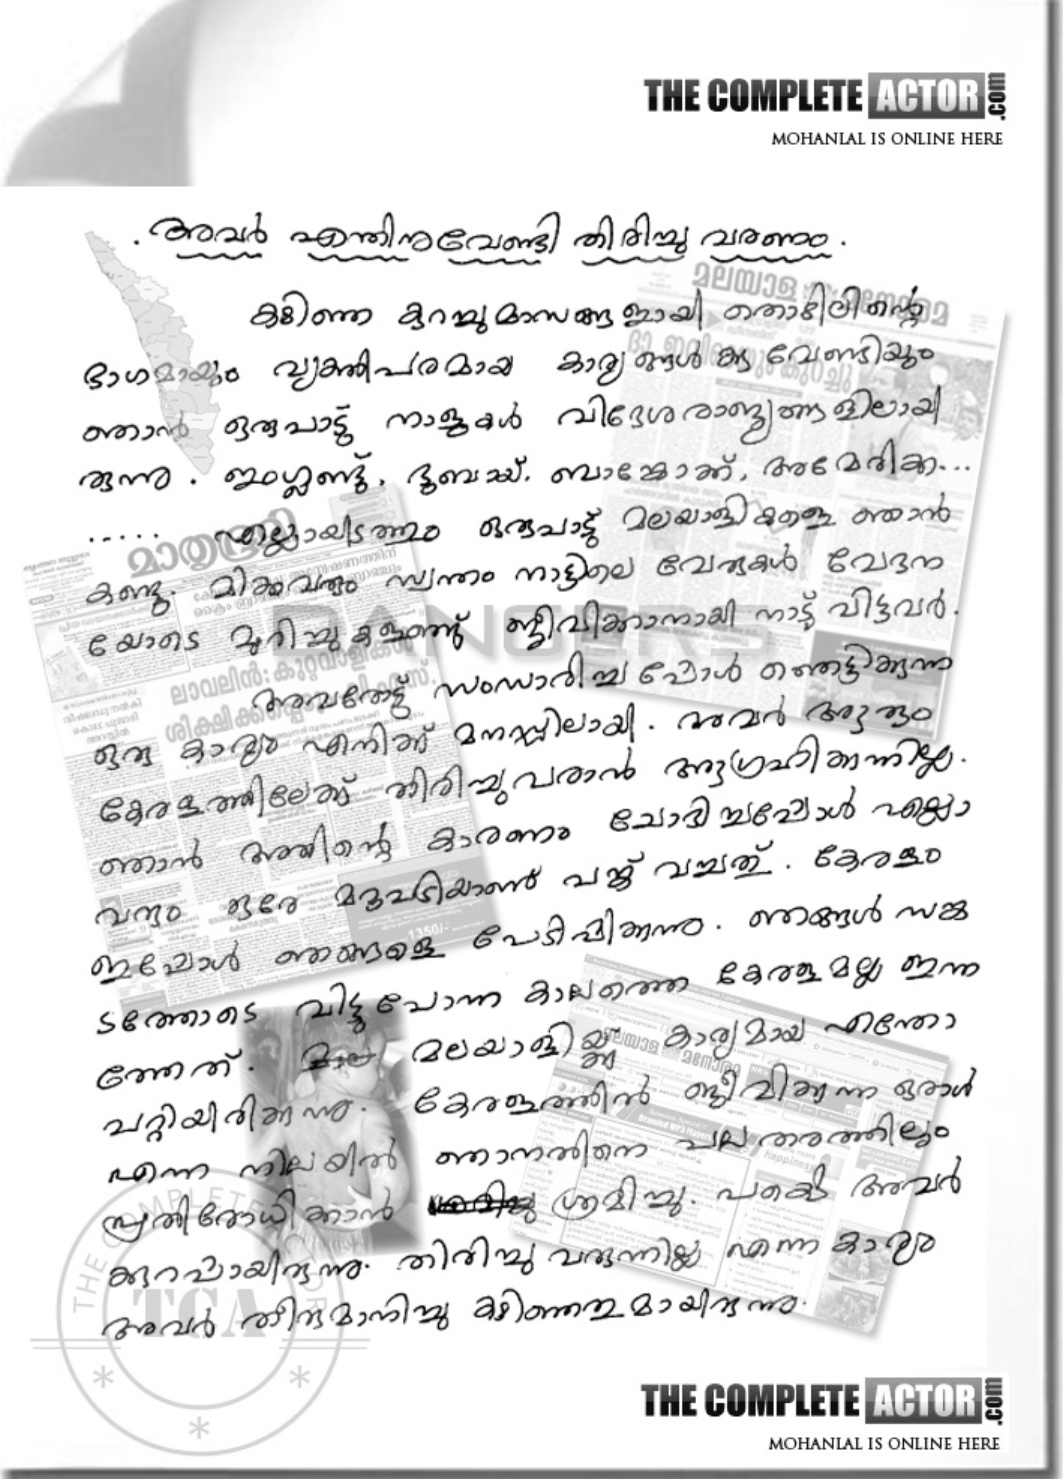 THE COMPLETE ACTOR.com
MOHANLAL IS ONLINE HERE
. അവർ എന്തിനുവേണ്ടി തിരിച്ചു വരണം .
കഴിഞ്ഞ കുറച്ചു മാസങ്ങളായി തൊഴിലിന്റെ
ഭാഗമായും വ്യക്തിപരമായ കാര്യങ്ങൾക്കു വേണ്ടിയും
ഞാൻ ഒരുപാട്ടു നാളുകൾ വിദേശരാജ്യങ്ങളിലായി
രുന്നു . ഇംഗ്ലണ്ട്, ദുബായ്, ബാങ്കോക്ക്, അമേരിക്ക...
..... എല്ലായിടത്തും ഒരുപാട്ടു മലയാളികളെ ഞാൻ
കണ്ടു. മിക്കവരും സ്വന്തം നാട്ടിലെ വേരുകൾ വേദന
യോടെ മുറിച്ചുകളഞ്ഞ് ജീവിക്കാനായി നാട്ടു വിട്ടവർ.
അവരോട്ടു സംസാരിച്ചപ്പോൾ ഞെട്ടിക്കുന്ന
ഒരു കാര്യം എനിക്ക് മനസ്സിലായി . അവർ ആരും
കേരളത്തിലേക്ക് തിരിച്ചുവരാൻ ആഗ്രഹിക്കുന്നില്ല.
ഞാൻ അതിന്റെ കാരണം ചോദിച്ചപ്പോൾ എല്ലാ
വരും ഒരേ മറുപടിയാണ് പങ്ക് വച്ചത് . കേരളം
ഇപ്പോൾ ഞങ്ങളെ പേടിപ്പിക്കുന്നു . ഞങ്ങൾ സങ്ക
ടത്തോടെ വിട്ടുപോന്ന കാലത്തെ കേരളമല്ല ഇന്ന
ത്തേത് . മലയാളിയ്ക്ക് കാര്യമായ എന്തോ
പറ്റിയിരിക്കുന്നു . കേരളത്തിൽ ജീവിക്കുന്ന ഒരാൾ
എന്ന നിലയിൽ ഞാനതിനെ പലതരത്തിലും
പ്രതിരോധിക്കാൻ ശ്രമിച്ചു . പക്ഷെ അവർ
ക്കുറപ്പായിരുന്നു . തിരിച്ചു വരുന്നില്ല എന്ന കാര്യം
അവർ തീരുമാനിച്ചു കഴിഞ്ഞതുമായിരുന്നു .
മലയാള മനോരമ
മാതൃഭൂമി
ലാവലിൻ: കുറ്റവാളികൾ
DANGERS
1350/-
Happiness
THE COMPLETE ACTOR
TCA
THE COMPLETE ACTOR.com
MOHANLAL IS ONLINE HERE